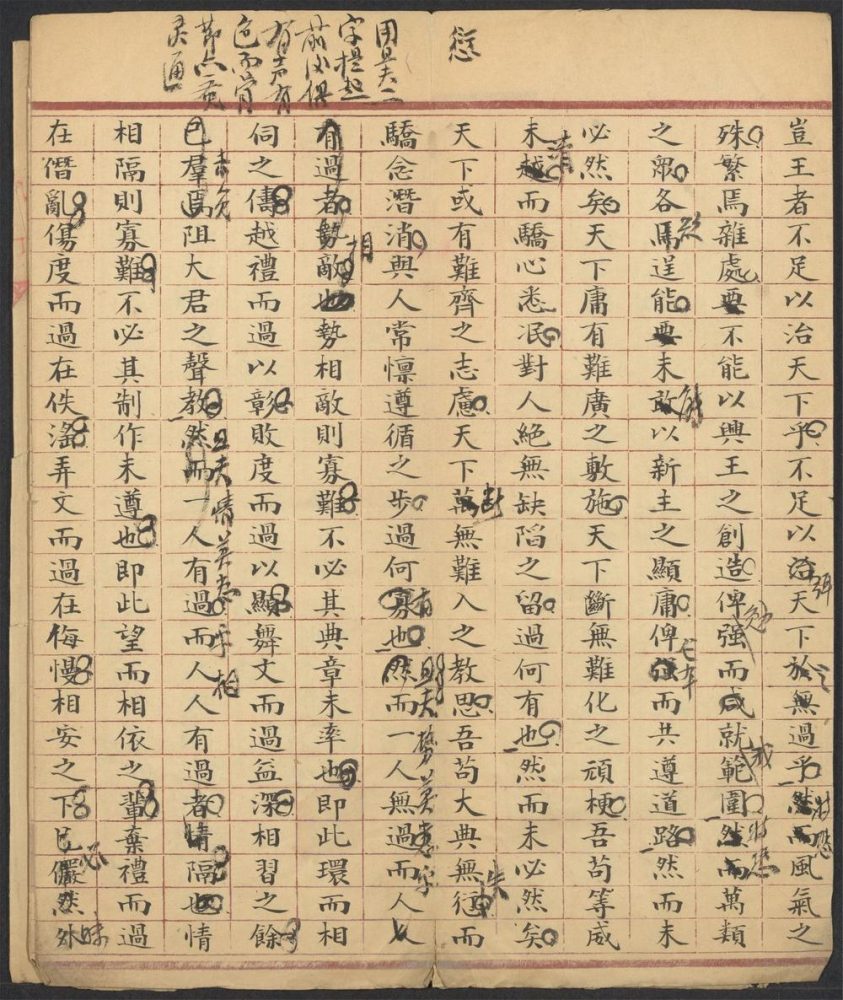 愆
字提起
有声有
色而骨
灵通
豈王者不足以治天下乎不足以治天下於無過乎然而風氣之
殊繁焉雜處要不能以興王之創造俾強而咸就範圍然而萬類
之眾各焉逞能要未敢以新主之顯庸俾強而共遵道路然而未
必然矣天下庸有難廣之敷施天下斷無難化之頑梗吾苟等威
未越而驕心悉泯對人絕無缺陷之留過何有也然而未必然矣
天下或有難齊之志慮天下萬無難入之教思吾苟大典無愆而
驕念潛消與人常懍遵循之步過何寡也然而一人無過而人人
有過者勢敵也勢相敵則寡難不必其典章未率也即此環而相
伺之儔越禮而過以彰敗度而過以顯舞文而過益深相習之餘
已羣焉阻大君之聲教然而一人有過而人人有過者情隔也情
相隔則寡難不必其制作未遵也即此望而相依之輩棄禮而過
在僭亂傷度而過在佚滛弄文而過在侮慢相安之下已儼然外